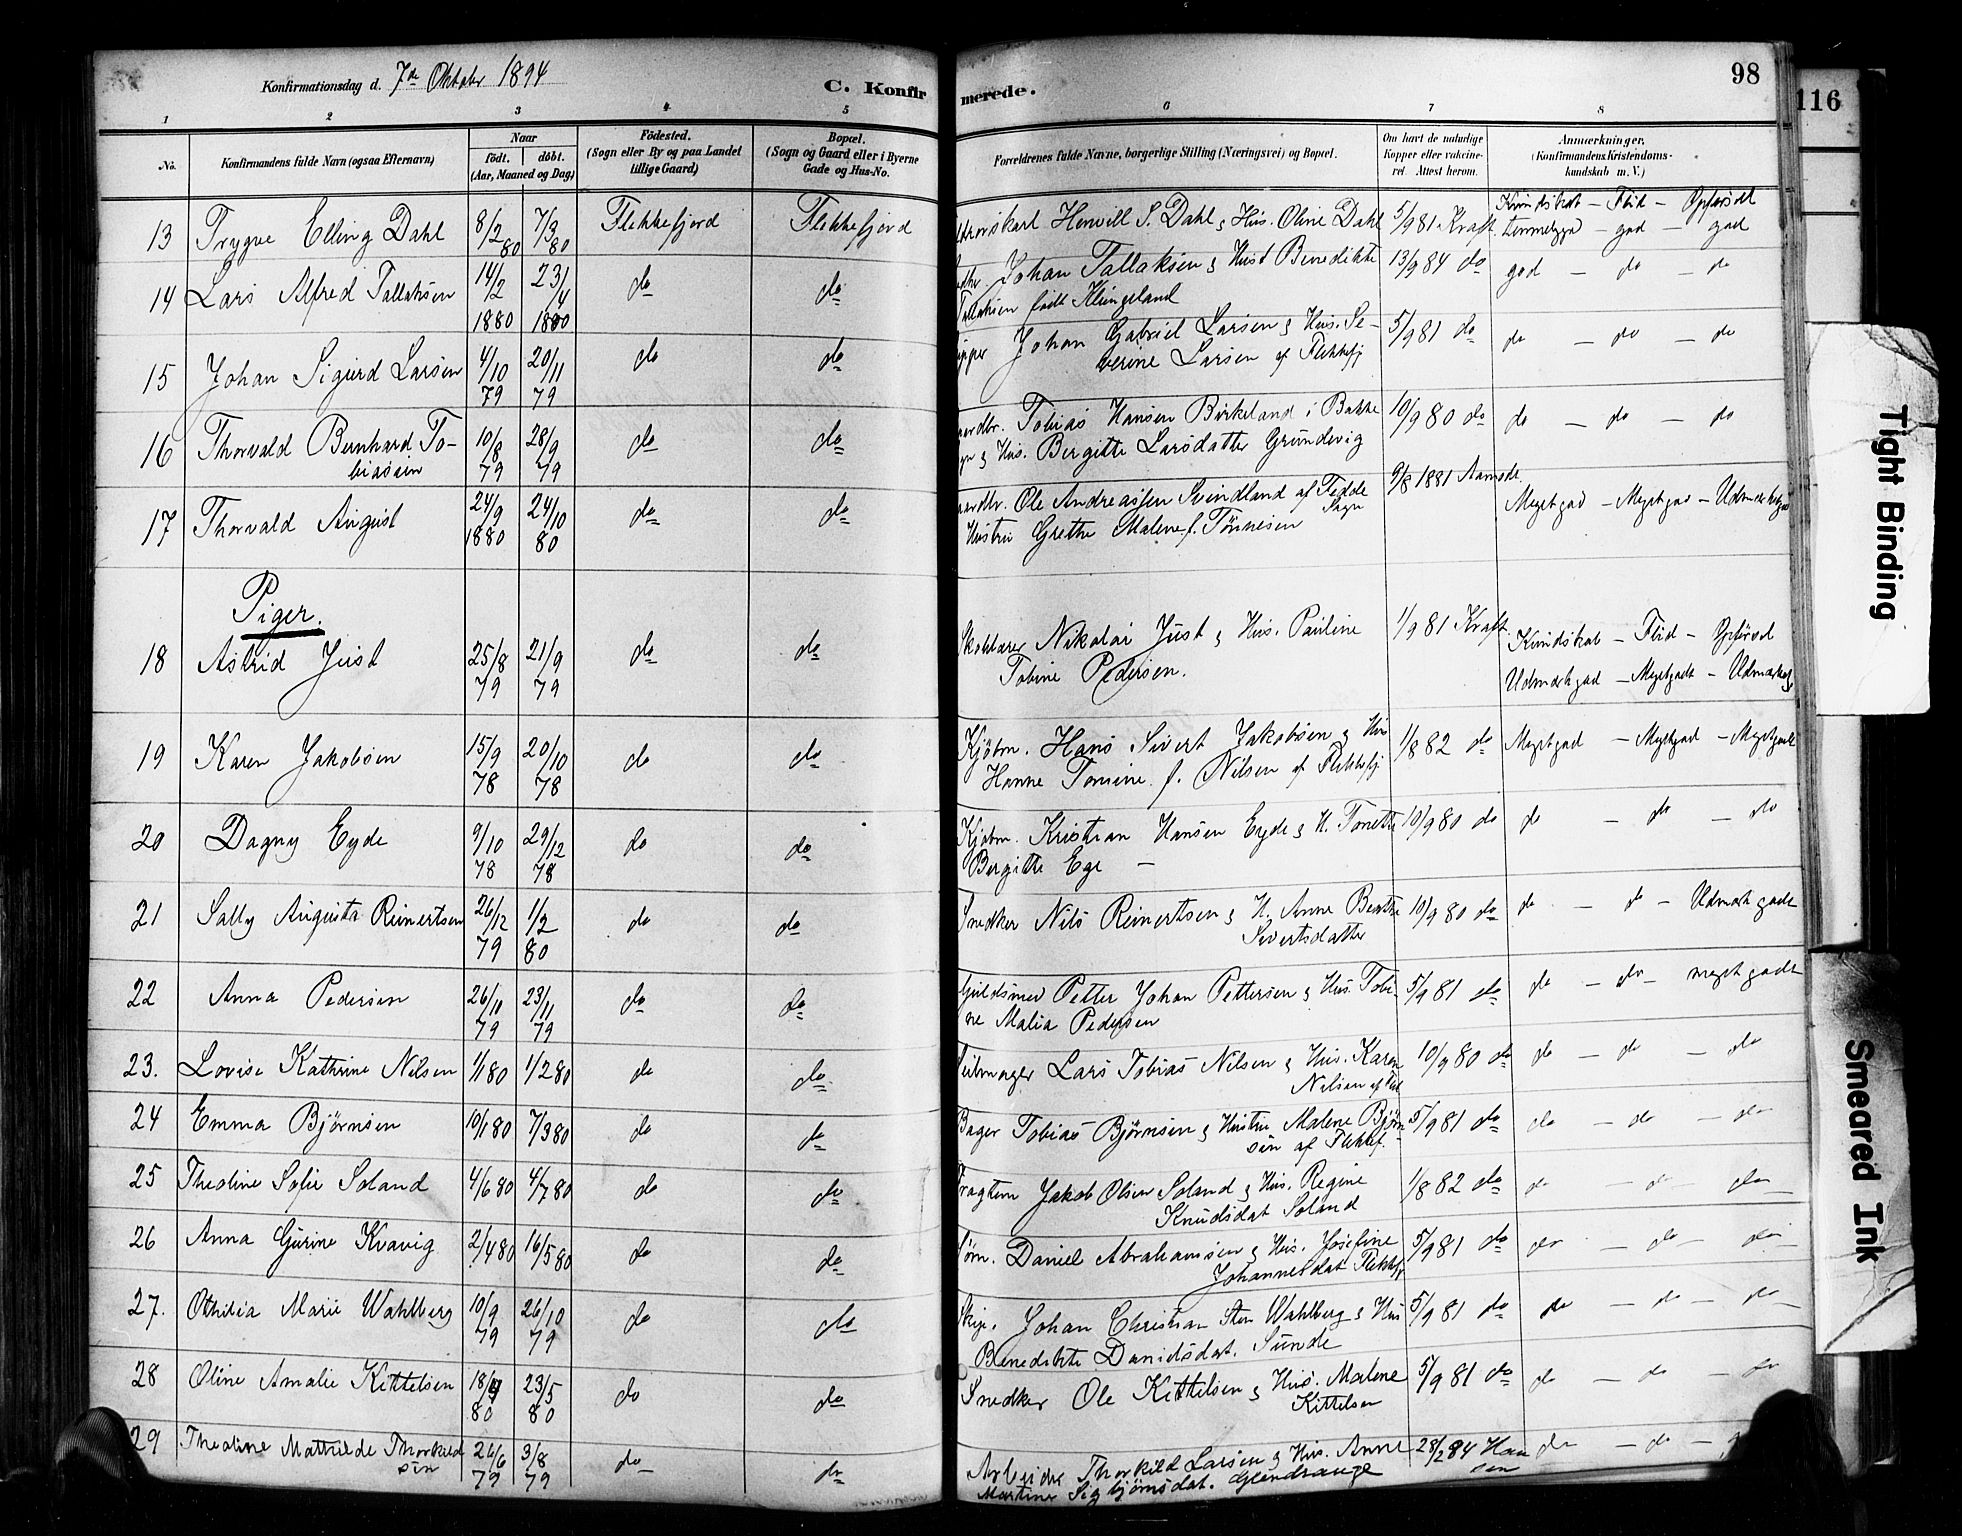 Konfirmationsdag d. 7de Oktober 1894
C. Konfirmerede.
98
116
1 2 3 4 5 6 7 8
No.
Konfirmandens fulde Navn (ogsaa Efternavn)
Naar
födt. döbt.
(Aar, Maaned og Dag)
Födested.
(Sogn eller By og paa Landet
tillige Gaard)
Bopæl.
(Sogn og Gaard eller i Byerne
Gade og Hus-No.
Forældrenes fulde Navne, borgerlige Stilling (Næringsvei) og Bopæl.
Om havt de naturlige
Kopper eller vaccine-
ret Attest herom.
Anmærkninger.
(Konfirmandens Kristendoms-
kundskab m. V.)
13 Trygve Elling Dahl 8/2 80 7/3 80 Flekkefjord Flekkefjord S. Dahl & Hus. Oline Dahl 5/9 81 Kraft Kundskab – Flid – Opförsel
god – god
14 Lars Alfred Tallaksen 14/2 1880 23/4 1880 do do Johan Tallaksen & Hust Benedikte 13/9 84 do god – do – do
Tallaksen födt Klungeland
15 Johan Sigurd Larsen 4/10 79 20/11 79 do do Johan Gabriel Larsen & Hus. Se- 5/9 81 do do – do – do
verine Larsen af Flekkefj
16 Thorvald Bernhard To- 10/8 79 28/9 79 do do Tobias Hansen Birkeland i Bakke 10/9 80 do do – do – do
biassen & Hus. Bergitte Larsdatter Grundevig
17 Thorvald August 24/9 1880 24/10 80 do do Ole Andreassen Svindland af Fedde 9/8 1881 Megetgod – Megetgod –
Sogn
Hustru Grethe Malene f. Tönnesen
Piger.
18 Astrid Just 25/8 79 21/9 79 do do Nikolai Just & Hus. Pauline 1/9 81 Kraft Kundskab – Flid – Opförsel
Tobine Pedersen. Udmærk god – Megetgodt –
19 Karen Jakobsen 15/9 78 20/10 78 do do Kjöbm. Hans Sivert Jakobsen & Hus 1/8 82 do Megetgod – Megetgod – Megetgodt
Hanne Tomine f. Nilsen af Flekkefj
20 Dagny Eyde 9/10 78 29/12 78 do do Kjöbm. Kristian Hansen Eyde & H. Tonette 10/9 80 do do – do – do
Bergitte Ege –
21 Sally Augusta Reinertsen 26/12 79 1/2 80 do do Snedker Nils Reinertsen & H. Anne Beathe 10/9 80 do do – do – Udmærk godt
Sivertsdatter
22 Anna Pedersen 26/10 79 23/11 79 do do Guldsmed Petter Johan Pettersen & Hus. Tobi- 5/9 81 do do – do – meget godt
ne Malia Pedersen
23. Lovise Kathrine Nilsen 1/1 80 1/2 80 do do Seilmager Lars Tobias Nilsen & Hus. Karen 10/9 80 do do – do – do
Nilsen af Flek
24 Emma Bjørnsen 10/1 80 7/3 80 do do Bager Tobias Bjørnsen & Hustru Malene Bjørn- 5/9 81 do do – do – do
sen af Flekkef.
25 Theoline Sofie Soland 4/6 80 4/7 80 do do Jakob Olsen Soland & Hus. Regine 1/8 82 do do – do – do
Knudsdat Soland
26 Anna Gurine Kvavig 2/4 80 16/5 80 do do Daniel Abrahamsen & Hus. Josefine 5/9 81 do do – do – do
Johannesdat Flekkefj
27. Othilia Marie Wahlberg 10/9 79 26/10 79 do do Johan Christian Sten Wahlberg & Hus 5/9 81 do do – do – do
Benedikte Danielsdat. Sunde
28 Oline Amalie Kittelsen 18/4 80 23/5 80 do do Snedker Ole Kittelsen & Hus. Malene 5/9 81 do do – do – do
Kittelsen
29 Theoline Mathilde Thorkild 26/6 79 3/8 79 do do Arbeider Thorkild Larsen & Hus. Anne 28/2 84 Han do – do –
sen sen
Martine Sigbjørnsdat. Glendrange
Tight Binding
Smeared Ink